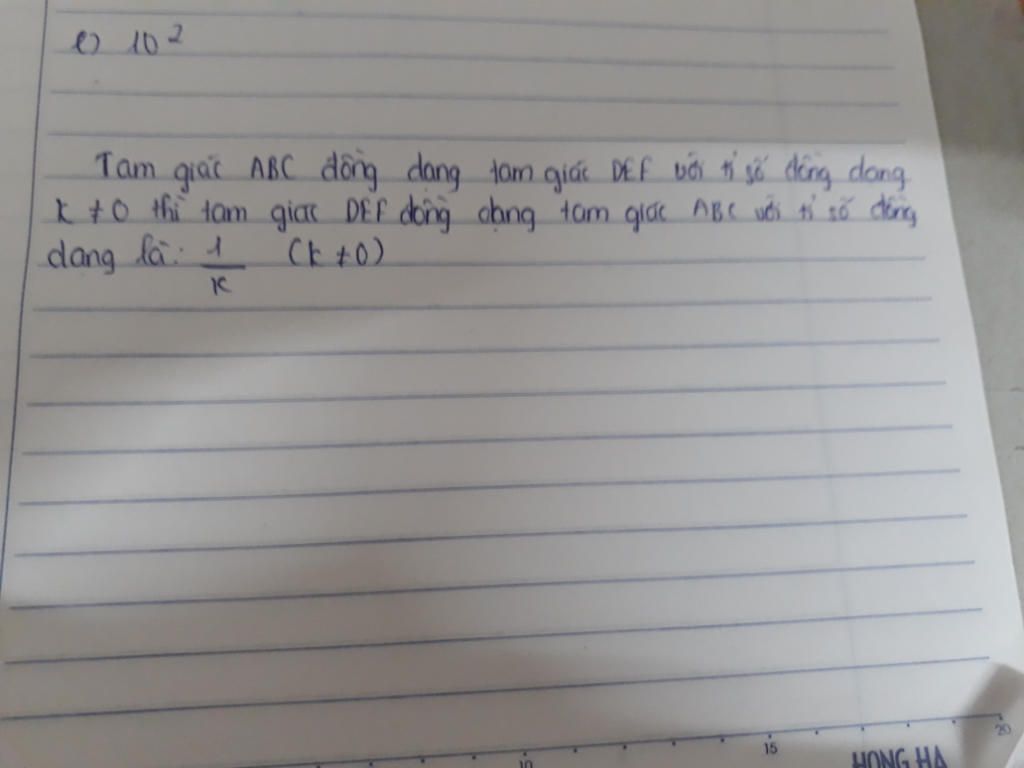 e) 10²
Tam giác ABC đồng dạng tam giác DEF với tỉ số đồng dạng
k ≠ 0 thì tam giác DEF đồng dạng tam giác ABC với tỉ số đồng
dạng là: 1/k (k ≠ 0)
10 15 20
HONG HA